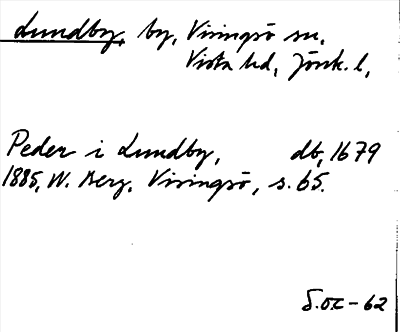 Lundby, by, Visingsö sn,
Vista hd, Jönk. l,
Peder i Lundby, db, 1679
1885, W. Berg. Visingsö, s. 65.
S.O.C - 62